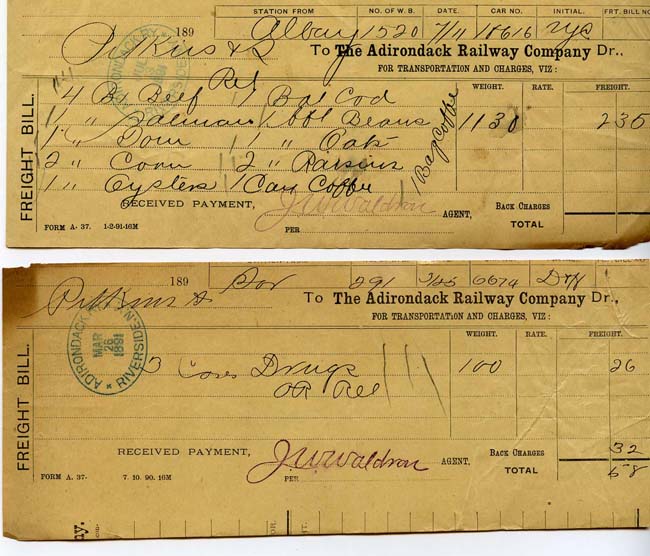 STATION FROM NO. OF W. B. DATE. CAR NO. INITIAL. FRT. BILL NO
189 Albany 1520 7/11 18616
To The Adirondack Railway Company Dr.,
FOR TRANSPORTATION AND CHARGES, VIZ:
ADIRONDACK RY. 1891 RIVERSIDE
WEIGHT. RATE. FREIGHT.
4 Bx Beef 1 Bat Cod
1 " Salmon 1 bbl Beans 1130 235
1 " Dom 1 " Oat
2 " Corn 2 " Raisins
1 " Oysters 1 Can Coffee
1 Bag Coffee
FREIGHT BILL.
RECEIVED PAYMENT, J.W. Waldron AGENT, BACK CHARGES
PER TOTAL
FORM A. 37. 1-2-91-16M
189 291 3/25 6674
Pitkins &
To The Adirondack Railway Company Dr.,
FOR TRANSPORTATION AND CHARGES, VIZ:
ADIRONDACK RY. MAR 26 1891 RIVERSIDE, N.Y.
WEIGHT. RATE. FREIGHT.
3 Cases Drugs 100 26
OR Rel
FREIGHT BILL.
RECEIVED PAYMENT, J.W. Waldron AGENT, BACK CHARGES 32
PER TOTAL 58
FORM A. 37- 7. 10. 90. 16M